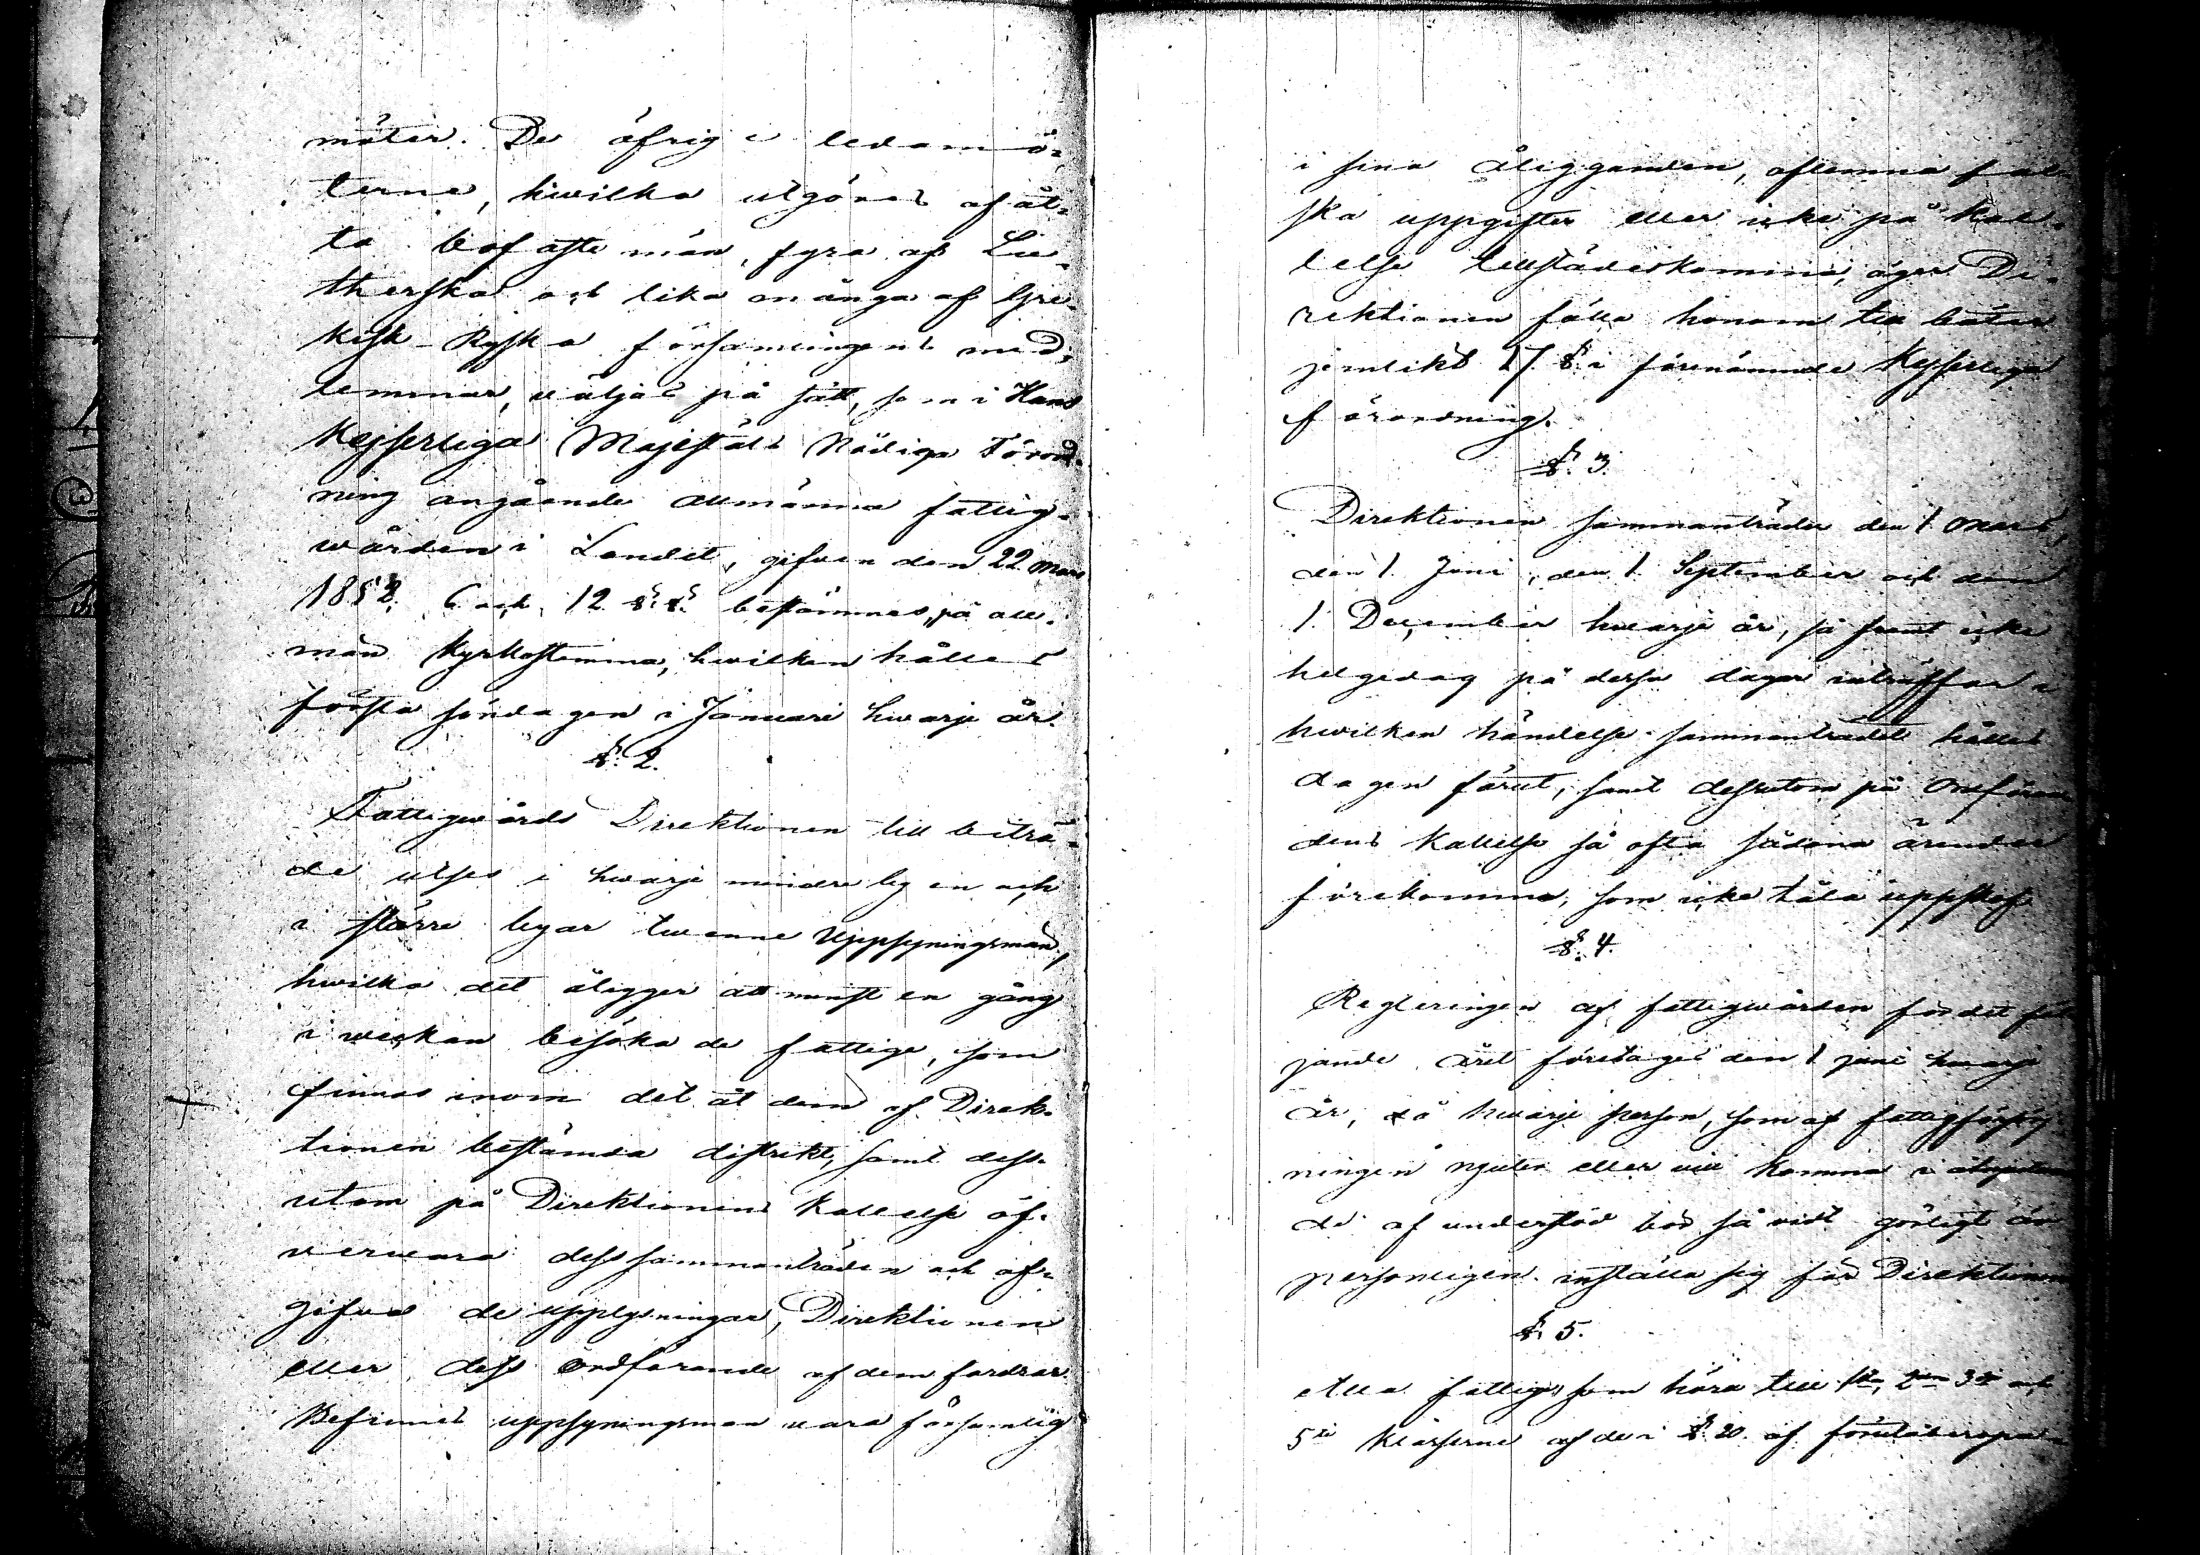 möter. De öfrige ledamö-
terne, hwilka utgöras af åt-
ta bofaste män, fyra af Lu-
therska och lika många af Gre-
kisk-Ryska församlingens med-
lemmar, väljas på sätt, som i Hans
Kejserliga Majestäts Nådiga Förord-
ning angående allmänna fattig-
wården i Landet, gifven den 22 Mars
1852, 6 och 12 §.§. bestämmes, på all-
män Kyrkostämma, hwilken hålles
första söndagen i Januari hwarje år.
§. 2.
Fattigwårds Direktionen till biträ-
de utses i hwarje mindre by en och
i större byar twenne Uppsyningsmän,
hwilka det åligger att minst en gång
i weckan besöka de fattige, som
finnas inom det åt dem af Direk-
tionen bestämda distrikt, samt dess-
utom på Direktionens Kallelse öf-
vervara dess sammanträden och af-
gifva de upplysningar, Direktionen
eller dess Ordförande af dem fordrar.
Befinnes uppsyningsman vara försumlig
i sina åligganden, aflemna fal-
ska uppgifter eller icke på Kal-
lelse tillstädeskomma, äger Di-
rektionen fälla honom till böter
jemlikt 17 §. i förenämnde Kejserliga
förordning.
§. 3.
Direktionen sammanträder den 1. Mars,
den 1. Juni, den 1. September och den
1. December hwarje år, så framt icke
helgedag på dessa dagar inträffar i
hwilken händelse sammanträdet hålles
dagen förut, samt dessutom på Ordföran-
dens Kallelse så ofta sådana ärender
förekomma, som icke tåla uppskof
§. 4.
Regleringen af fattigwården för det föl-
jande året företages den 1 juni hwarje
år, då hwarje person, som af fattigförsörj-
ningen njuter eller vill komma i åtnjutan-
de af understöd bör så vidt görligt är
personligen inställa sig för Direktionen
§. 5.
Alla fattige, som höra till 1sta, 2dra 3dje och
5te Klasserne af de i §. 20. af